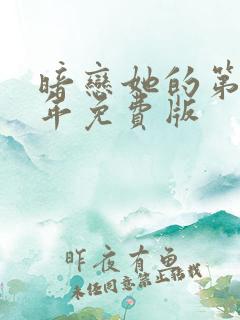 暗戀她的第
年免費版
昨夜有魚
未经同意禁止转载